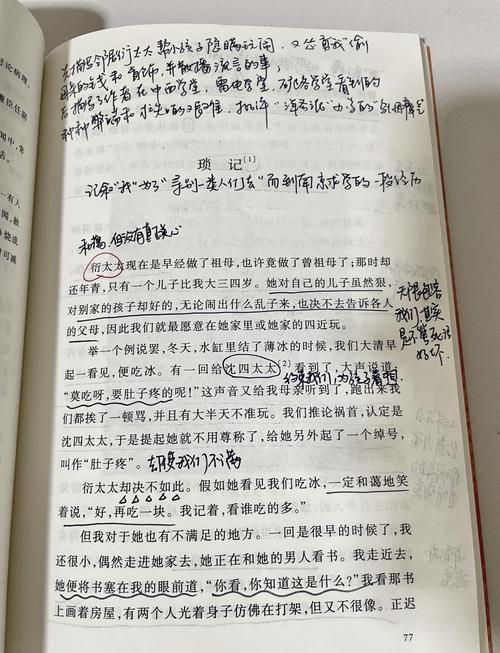 先描写邻居衍太太帮小孩子隐瞒玩闹,又怂恿我“偷
母亲的钱和首饰,并散播流言的事,
后描写了作者在中西学堂,雷电学堂,矿路学堂看到的
种种弊端和求学的艰难,批评“洋务派”办学的
琐 记(1)
记叙“我”为了“寻别一类人们去”而到南京求学的一段经历
和蔼,但没有真正关心
衍太太现在是早经做了祖母,也许竟做了曾祖母了;那时却
还年青,只有一个儿子比我大三四岁。她对自己的儿子虽然狠,
对别家的孩子却好的,无论闹出什么乱子来,也决不去告诉各人
的父母,因此我们就最愿意在她家里或她家的四近玩。
无限包容
我们,其实
是不管我们
好坏
举一个例说罢,冬天,水缸里结了薄冰的时候,我们大清早
起一看见,便吃冰。有一回给沈四太太(2)看到了,大声说道:
“莫吃呀,要肚子疼的呢!”这声音又给我母亲听到了,跑出来我
们都挨了一顿骂,并且有大半天不准玩。我们推论祸首,认定是
沈四太太,于是提起她就不用尊称了,给她另外起了一个绰号,
叫作“肚子疼”。
却使我们不满
衍太太却决不如此。假如她看见我们吃冰,一定和蔼地笑
着说,“好,再吃一块。我记着,看谁吃的多。”
但我对于她也有不满足的地方。一回是很早的时候了,我
还很小,偶然走进她家去,她正在和她的男人看书。我走近去,
她便将书塞在我的眼前道,“你看,你知道这是什么?”我看那书
上画着房屋,有两个人光着身子仿佛在打架,但又不很像。正迟
77